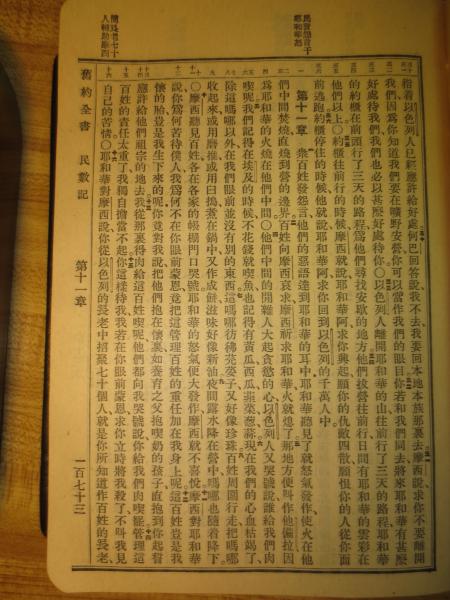 民發怨言干
耶和華怒
指着以色列人已經應許給好處何巴回答說我不去我要回本地本族那裏去摩西說求你不要離開
我們因爲你知道我們要在曠野安營你可以當作我們的眼目你若和我們同去將來耶和華有甚麼
好處待我們我們也必以甚麼好處待你○以色列人離開耶和華的山往前行了三天的路程耶和華
的約櫃在前頭行了三天的路程爲他們尋找安歇的地方他們拔營往前行日間有耶和華的雲彩在
他們以上○約櫃往前行的時候摩西就說耶和華阿求你興起願你的仇敵四散願恨你的人從你面
前逃跑約櫃停住的時候他就說耶和華阿求你回到以色列的千萬人中
第十一章 衆百姓發怨言他們的惡語達到耶和華的耳中耶和華聽見了就怒氣發作使火在他
們中間焚燒直燒到營的邊界百姓向摩西哀求摩西祈求耶和華火就熄了那地方便叫作他備拉因
爲耶和華的火燒在他們中間○他們中間的閒雜人大起貪慾的心以色列人又哭號說誰給我們肉
喫呢我們記得在埃及的時候不花錢就喫魚也記得有黃瓜西瓜韭菜葱蒜現在我們的心血枯竭了
除這嗎哪以外在我們眼前並沒有別的東西這嗎哪彷彿芫荽子又好像珍珠百姓周圍行走把嗎哪
收起來或用磨推或用臼搗煮在鍋中又作成餅滋味好像新油夜間露水降在營中嗎哪也隨着降下
○摩西聽見百姓各在各家的帳棚門口哭號耶和華的怒氣便大發作摩西就不喜悅摩西對耶和華
說你爲何苦待僕人我爲何不在你眼前蒙恩竟把這管理百姓的重任加在我身上呢這百姓豈是我
懷的胎豈是我生下來的呢你竟對我說把他們抱在懷裏如養育之父抱喫奶的孩子直抱到你起誓
應許給他們祖宗的地去我從那裏得肉給這百姓喫呢他們都向我哭號說你給我們肉喫罷管理這
百姓的責任太重了我獨自擔當不起你這樣待我我若在你眼前蒙恩求你立時將我殺了不叫我見
自己的苦情○耶和華對摩西說你從以色列的長老中招聚七十個人就是你所知道作百姓的長老、
簡長老七十
人輔助摩西
舊約全書 民數記 第十一章 一百七十三